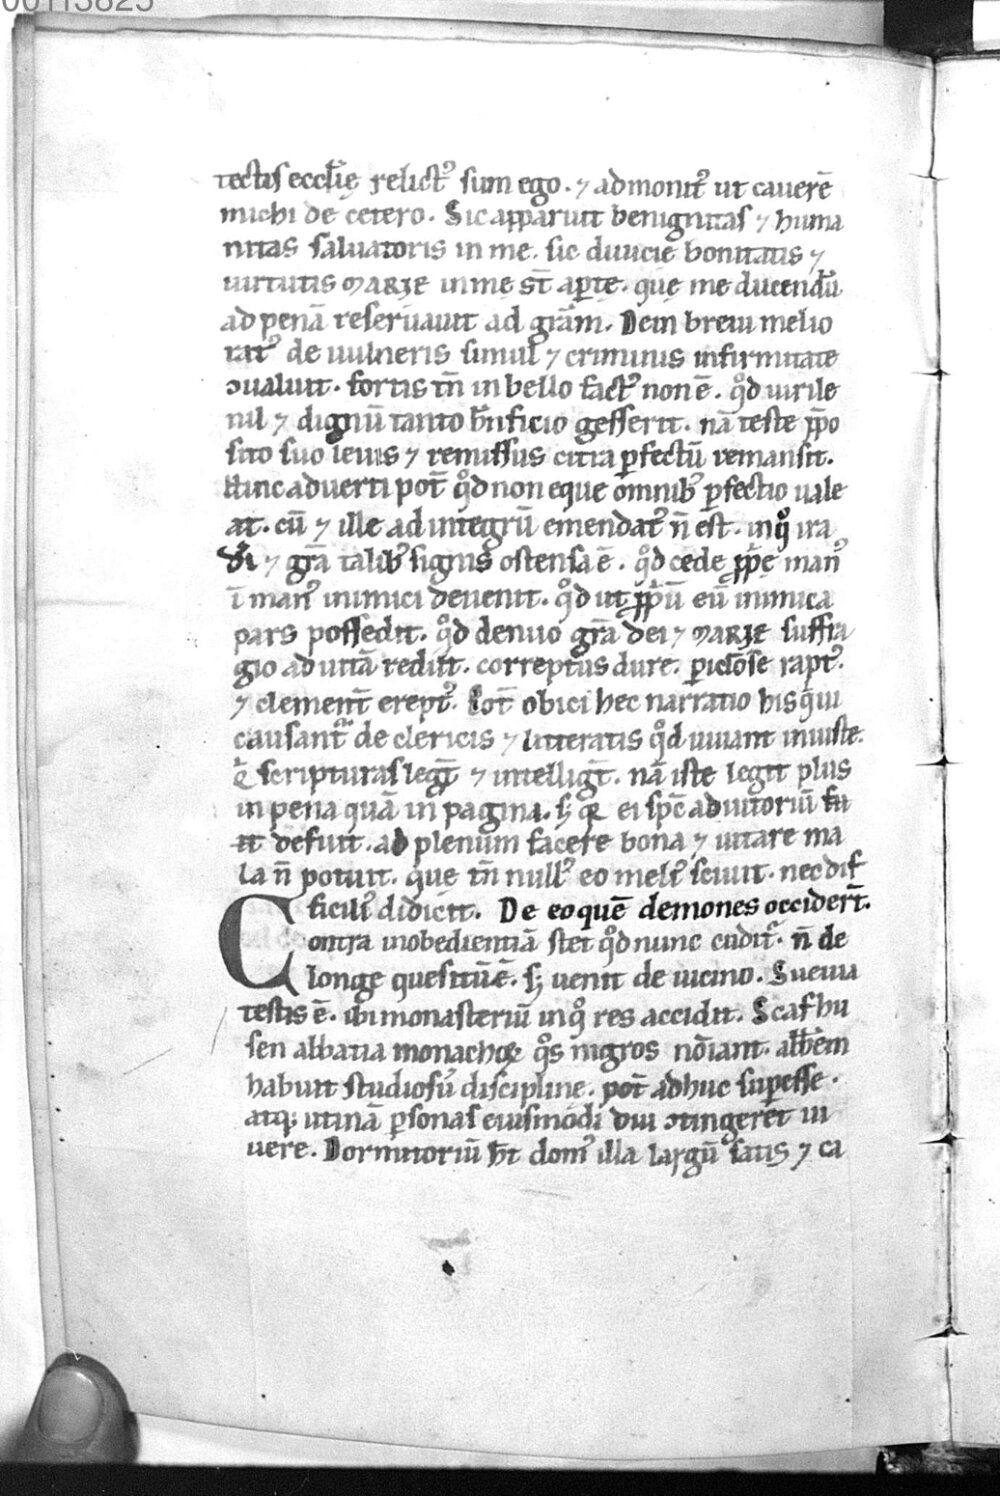 00113825
tectis eccl̄ię relict᾽ sum ego. ⁊ admonit᾽ ut cauerē
michi de cetero. Sic apparuit benignitas ⁊ huma
nitas saluatoris in me. sic diuicię bonitatis ⁊
uirtutis MARIE in me st̄ aꝑte. quę me ducendū
ad penā reseruauit ad grām. Dein breui melio
rat᾽ de uulneris simul ⁊ criminis infirmitate
ↄualuit. fortis tn̄ in bello fact᾽ non ē. qͦd uirile
nil ⁊ dignū tanto b̄nficio gesserit. nā teste ꝓpo
sito suo leuis ⁊ remissus citra ꝑfectū remansit.
Hinc aduerti pot̄ qͦd non eque om̄nib᾽ ꝑfectio uale
at. cū ⁊ ille ad integrū emendat᾽ n̄ est. in qͦ ira
dī ⁊ grā talib᾽ signis ostensa ē. qͦd cede ꝓp̄e man᾽
ī man᾽ inimici deuenit. qͦd ut ꝓp̄iū eū inimica
pars possedit. qͦd denuo grā dei ⁊ MARIE suffra
gio ad uitā rediit. correptus dure. ꝑicl̄ose rapt᾽.
⁊ clement̄ erept᾽. Pot̄ obici hec narratio his qui
causant᾽ de clericis ⁊ litteratis qͦd uiuant iniuste.
q̄ scripturas legt̄ ⁊ intelligt̄. nā iste legit plus
in pena quā in pagina. sꝫ qꝛ ei sp̄c adiutoriū
defuit. ad plenum facere bona ⁊ uitare ma
la n̄ potuit. que tn̄ null᾽ eo meli᾽ sciuit. nec dif
ficili᾽ didicit. De eo quē demones occidert̄.
Contra inobedientiā stet qͦd nunc cudit᾽. n̄ de
longe quesitū ē. sꝫ uenit de uicino. Sueuia
testis ē. ubi monasteriū in qͦ res accidit. Scafhu
sen abbatia monachoꝝ qͦs nigros nōiant. abbēm
habuit studiosū discipline. pot̄ adhuc suꝑesse.
atqꝫ utinā ꝑsonas eiusmodi diu ↄtingeret ui
uere. Dormitoriū ht̄ dom᾽ illa largū satis ⁊ ca